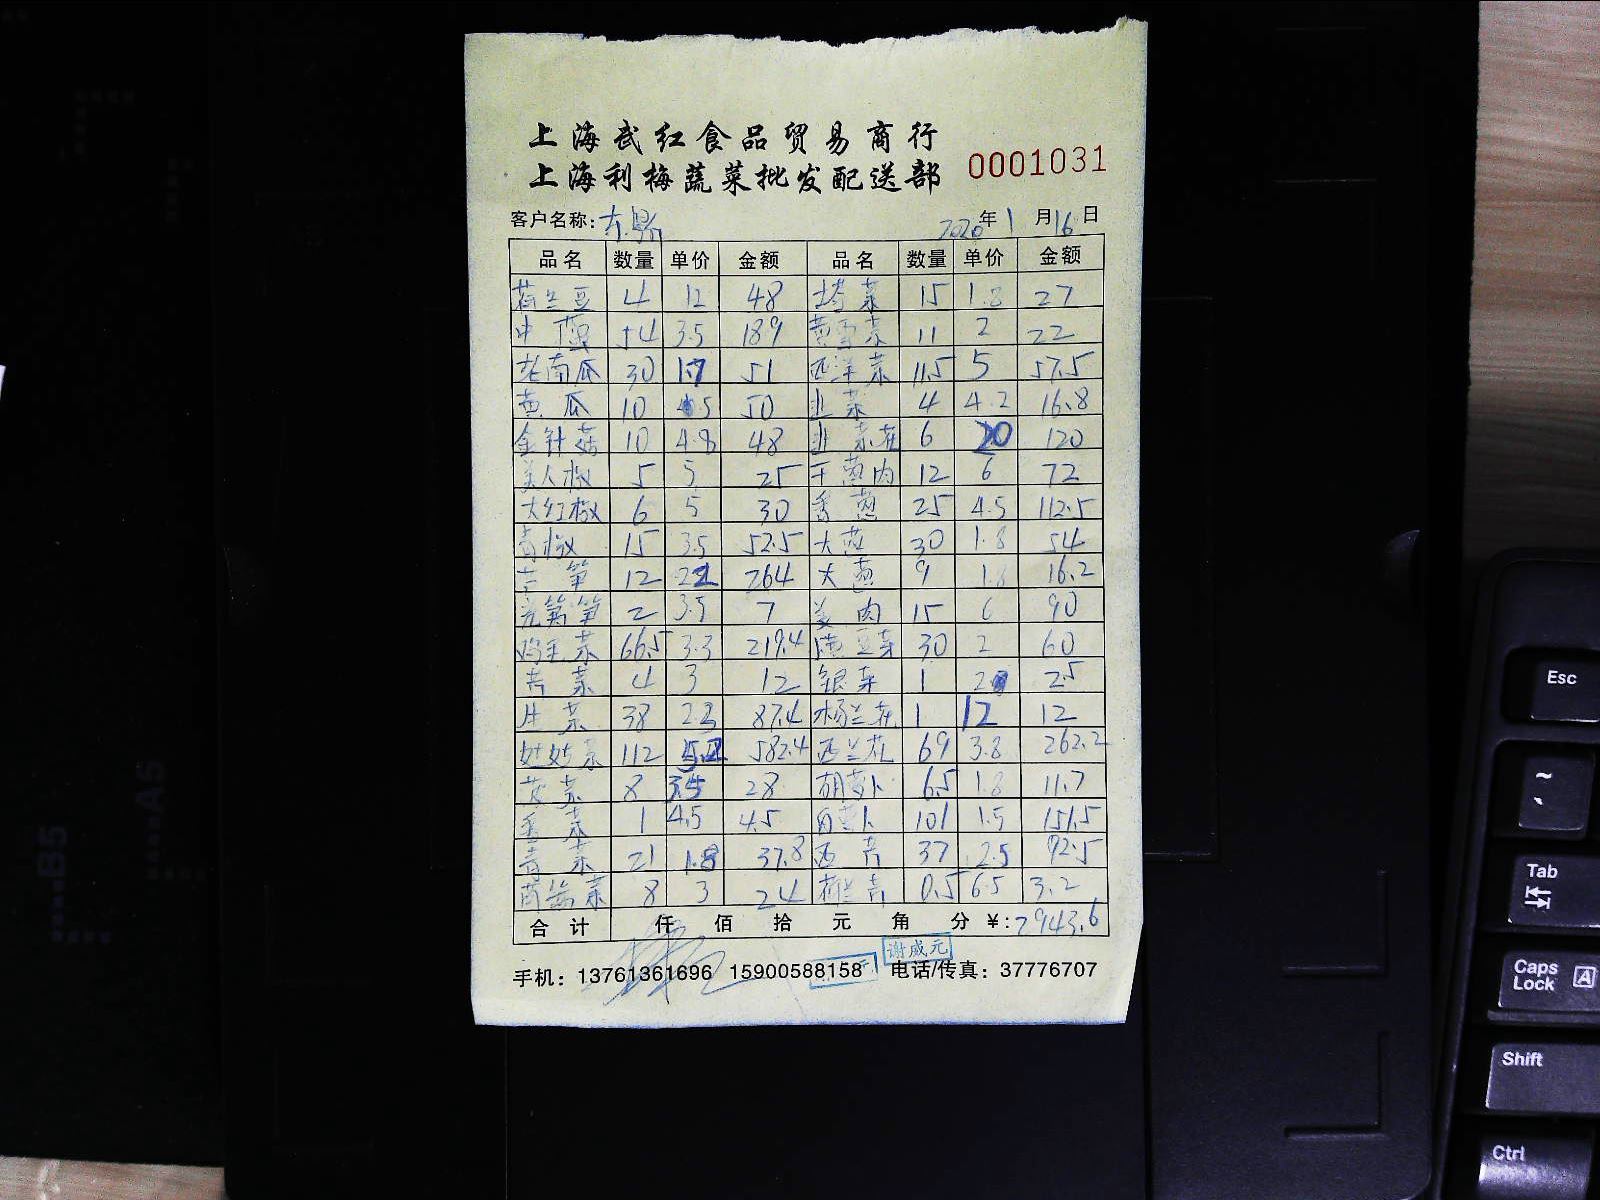 上海武红食品贸易商行
上海利梅蔬菜批发配送部 0001031
客户名称: 2020年1月16日
品名 数量 单价 金额 品名 数量 单价 金额
荷兰豆 4 12 48 塔菜 15 1.8 27
中 54 3.5 189 11 2 22
老南瓜 30 1.7 51 西洋菜 11.5 5 57.5
黄瓜 10 5 50 韭菜 4 4.2 16.8
金针菇 10 4.8 48 韭菜花 6 20 120
美人椒 5 5 25 干葱肉 12 6 72
大红椒 6 5 30 香葱 25 4.5 112.5
青椒 15 3.5 52.5 大蒜 30 1.8 54
笋 12 22 264 大葱 9 1.8 16.2
莴笋 2 3.5 7 姜肉 15 6 90
鸡毛菜 66.5 3.3 219.4 黄豆芽 30 2 60
菜 4 3 12 银芽 1 2.5
生菜 38 2.3 87.4 杨兰花 1 12 12
菜 112 5.2 582.4 西兰花 69 3.8 262.2
菜 8 3.5 28 胡萝卜 6.5 1.8 11.7
香菜 1 4.5 4.5 白萝卜 101 1.5 151.5
青菜 21 1.8 37.8 西青 37 2.5 92.5
菜 8 3 24 荷兰青 0.5 6.5 3.2
合计 仟 佰 拾 元 角 分 ¥:2943.6
谢成元
手机：13761361696 15900588158 电话/传真：37776707
B5
A5
Esc
~
Tab
Caps Lock A
Shift
Ctrl